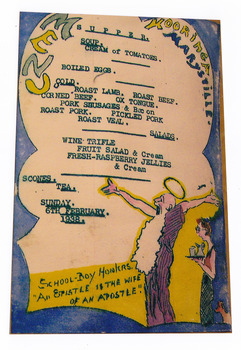 MENU
KOORINGA
MARYSVILLE
SUPPER
SOUP.
CREAM of TOMATOES.
BOILED EGGS.
COLD.
ROAST LAMB. ROAST BEEF.
CORNED BEEF. OX TONGUE.
PORK SEUSAGES & Bacon
ROAST PORK. PICKLED PORK
ROAST VEAL.
SALADS.
WINE TRIFLE
FRUIT SALAD & Cream
FRESH-RASPBERRY JELLIES
& Cream
SCONES.
TEA.
SUNDAY.
6TH FEBRUARY
1938.
SCHOOL-BOY HOWLERS.
"AN EPISTLE IS THE WIFE
OF AN APOSTLE"